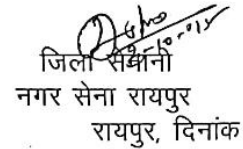 जिला सेनानी
नगर सेना रायपुर
रायपुर, दिनांक